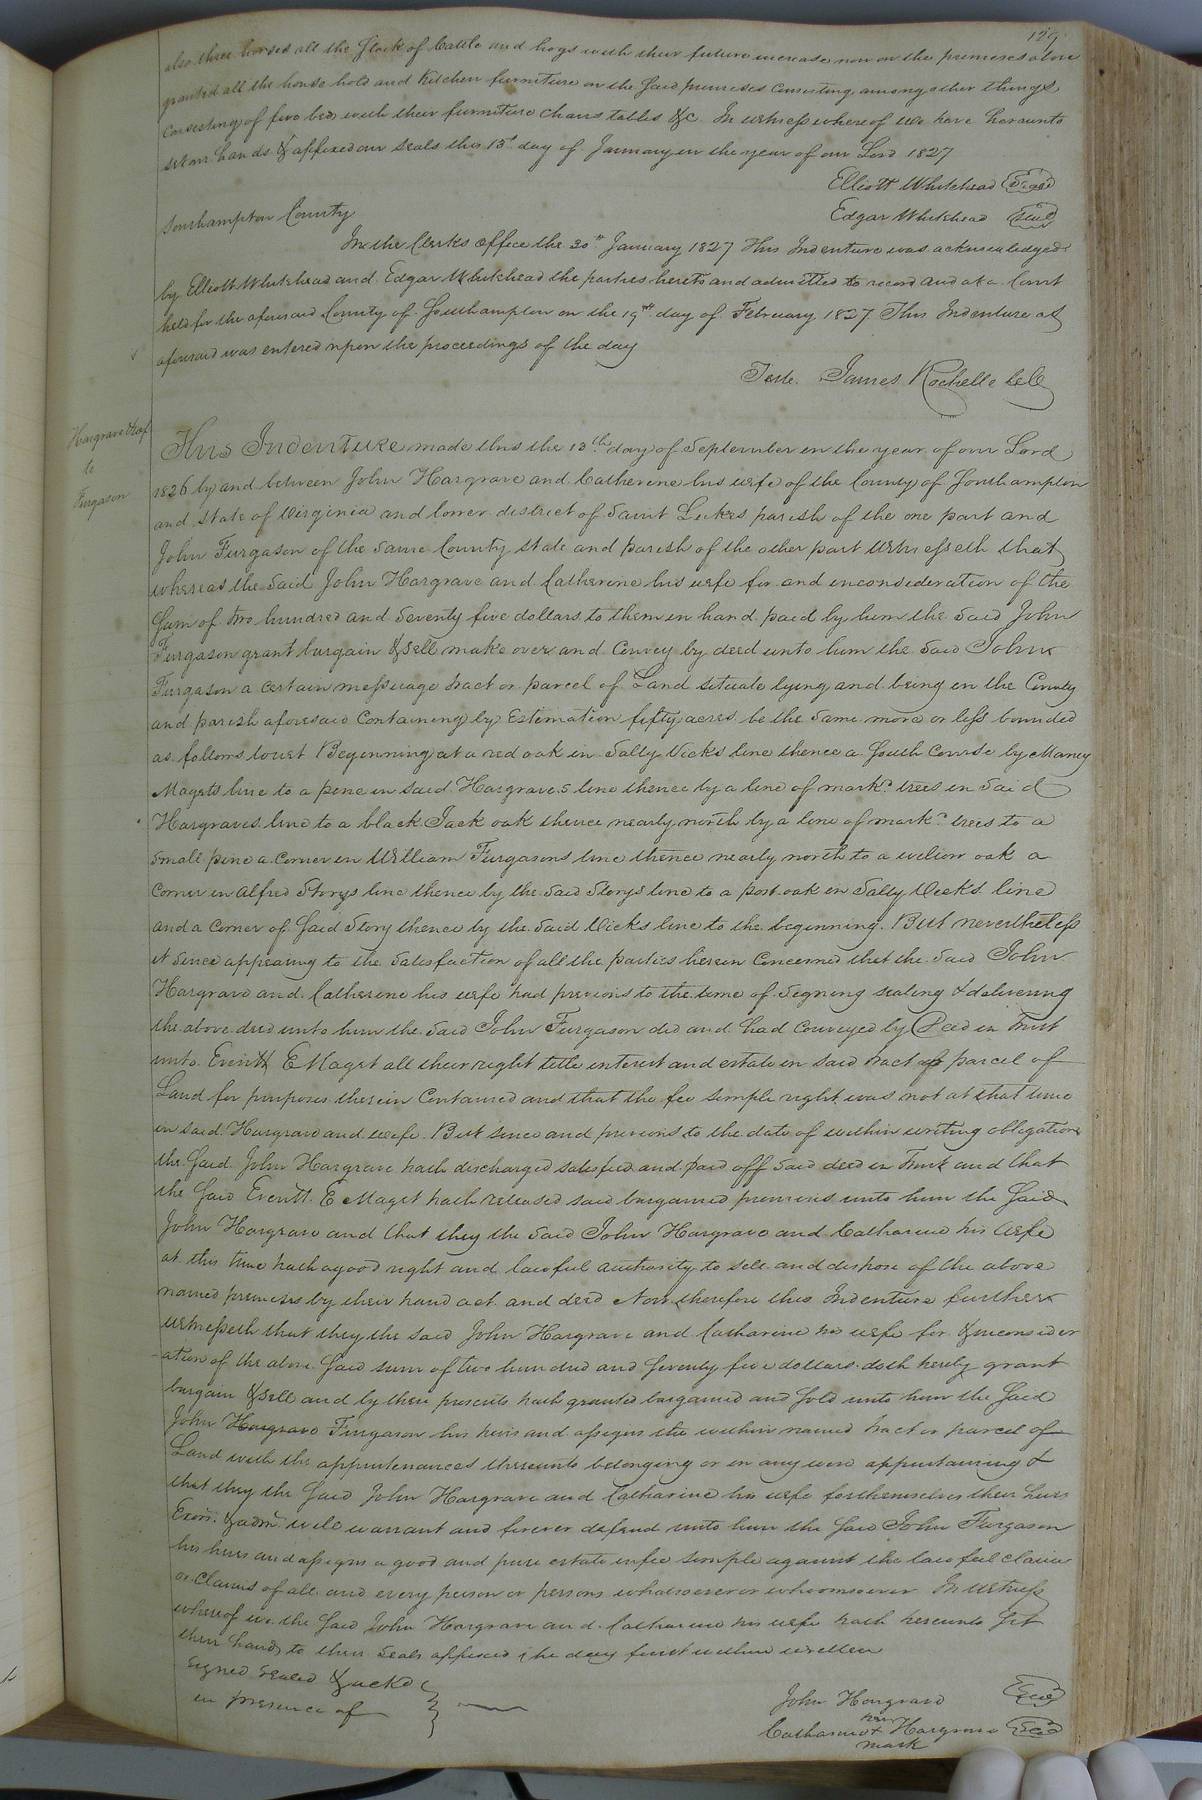 129
also three horses all the Stock of Cattle and hogs with their future increase now on the premises above
granted all the house hold and Kitchen furniture on the Said premises Consisting among other things
Consisting of five bed with their furniture Chairs tables &c. In witness whereof we have hereunto
set our hands & affixed our Seals this 13th day of January in the year of our Lord 1827
Elliott Whitehead Seal
Edgar Whitehead Seal
Southampton County
In the Clerks office the 30th January 1827 This Indenture was acknowledged
by Elliott Whitehead and Edgar Whitehead the parties hereto and admitted to record and at a Court
held for the aforesaid County of Southampton on the 19th day of February 1827 This Indenture as
aforesaid was entered upon the proceedings of the day
Teste. James Rochelle
Hargrave
to
Furgason
This Indenture made this the 13th day of September in the year of our Lord
1826 by and between John Hargrave and Catherine his wife of the County of Southampton
and State of Virginia and lower district of Saint Lukes parish of the one part and
John Furgason of the Same County State and parish of the other part Witnesseth that
whereas the Said John Hargrave and Catherine his wife for and inconsideration of the
Sum of two hundred and Seventy five dollars to them in hand paid by him the Said John
Furgason grant bargain & Sell make over and Convey by deed unto him the Said John
Furgason a certain messuage tract or parcel of Land situate lying and being in the County
and parish aforesaid Containing by Estemation fifty acres be the Same more or less bounded
as follows towit Beginning at a red oak in Sally Vicks line thence a South Course by
Magets line to a pine in said Hargraves line thence by a line of markd trees in Said
Hargraves line to a black Jack oak thence nearly north by a line of markd trees to a
Small pine a Corner in William Furgasons line thence nearly north to a willow oak a
Corner in Alfred Storys line thence by the Said Storys line to a post oak in Sally Vicks line
and a Corner of Said Story thence by the Said Vicks line to the beginning. But nevertheless
it Since appearing to the Satisfaction of all the parties herein Concerned that the Said John
Hargrave and Catherine his wife had previous to the time of Signing sealing & delivering
the above deed unto him the Said John Furgason did and had Conveyed by Deed in Trust
unto Everitt E Maget all their right title interest and estate in said tract of parcel of
Land for purposes therein Contained and that the fee simple right was not at that time
in said Hargrave and wife. But since and previous to the date of within writing obligation
the Said John Hargrave hath discharged satisfied and paid off Said deed in Trust and that
the Said Everitt E Maget hath released said bargained premises unto him the Said
John Hargrave and that they the Said John Hargrave and Catharine his Wife
at this time hath a good right and lawful authority to sell and dispose of the above
named premises by their hand act and deed Now therefore this Indenture further
witnesseth that they the said John Hargrave and Catharine his wife for & inconsider
ation of the above Said sum of two hundred and Seventy five dollars doth hereby grant
bargain & Sell and by these presents hath granted bargained and Sold unto him the Said
John Hargrave Furgason his heirs and assigns the within named tract or parcel of
Land with the appurtenances thereunto belonging or in any wise appurtaining &
that they the Said John Hargrave and Catharine his wife for themselves their heirs
Exors. & admrs will warrant and forever defend unto him the Said John Furgason
his heirs and assigns a good and pure estate in fee simple against the lawful claim
or Claims of all and every person or persons whatsoever or whomsoever In Witness
whereof we the Said John Hargrave and Catharine his wife hath hereunto Set
their hands to their Seals affixed the day first within written
signed sealed & ackd
in presence of
John Hargrave Seal
her
Catharine + Hargrave Seal
mark